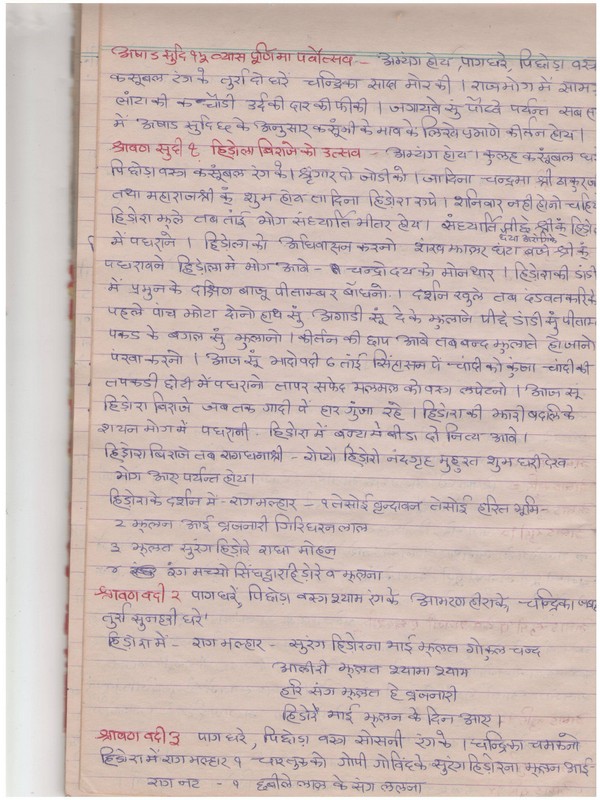 अषाड सुदि १५ व्यास पूर्णिमा पर्वोत्सव - अभ्यंग होय, पाग धरे, पिछोड़ा वस्त्र
कसूंबल रंग के तुर्रा दो धरें चन्द्रिका सादा मोर की । राजभोग में साम
लांटा की कचौडी उर्द की दार की फीकी । जगायवे सुं पौढवे पर्यन्त सब
में अषाड सुदि ६ के अनुसार कसूंभी के भाव के लिखे प्रमाणे कीर्तन होय ।
श्रावण सुदी १ हिंडोला बिराजे को उत्सव - अभ्यंग होय । कुलह कसूंबल
पिछोड़ा वस्त्र कसूंबल रंग के । श्रृंगार दो जोडी को । जा दिना चन्द्रमा श्री ठाकुरजी
तथा महाराजश्री कुं शुभ होय ता दिना हिंडोरा रोपे । शनिवार नहीं होनो चहिए
हिंडोरा झूले तब तांई भोग संध्यार्ति भीतर होय । संध्यार्ति पीछे श्री कुं हिंडोरा
में पधराने । हिंडोला को अधिवासन करनो शंख झालर घंटा बजे श्री कुं
पधरावने हिंडोला में भोग आवे - चन्द्रोदय को मोनथार । हिंडोरा की डांडी
में प्रभुन के दक्षिण बाजू पीताम्बर बाँधनो । दर्शन खुले तब दंडवत करिके
पहले पांच झोटा दोनो हाथ सुं अगाडी सुं दे के झुलाने पीछे डांडी सुं पीताम्बर
पकड के बगल सुं झुलानो । कीर्तन की छाप आवे तब बन्द झुलाते हो जानो
पंखा करनो । आज सूं भादो वदी ७ तांई सिंहासन पे चांदी को कुंजा चांदी की
तपकडी छोटी में पधरानो तापर सफेद मलमल को वस्त्र लपेटनो । आज सूं
हिंडोरा बिराजे जब तक गादी पें हार गुंजा रहे । हिंडोरा की झारी बदलि के
शयन भोग में पधरानी - हिंडोरा में बन्टा में बीडा दो नित्य आवे ।
हिंडोरा बिराजे तब राग धनाश्री - रोप्यो हिंडोरो नंदगृह मुहूरत शुभ घरी देख
भोग आए पर्यन्त होय ।
हिंडोरा के दर्शन में - राग मल्हार - १ तेसोई वृन्दावन तेसोई हरित भूमि -
२ झूलन आई व्रजनारी गिरिधरन लाल
३ झूलत सुरंग हिंडोरे राधा मोहन
४ रंग मच्यो सिंघद्वार हिंडोरे व झूलना
श्रावण वदी २ पाग धरें, पिछोडा वस्त्र श्याम रंग के आभरण हीरा के - चन्द्रिका
तुर्रा सुनहरी धरे
हिंडोरा में - राग मल्हार - सुरंग हिंडोरना माई झूलत गोकुल चन्द
आलीरी झूलत श्यामा श्याम
हरि संग झूलत हे व्रजनारी
हिंडोरें माई झूलन के दिन आए ।
श्रावण वदी ३ पाग धरे, पिछोडा वस्त्र सोसनी रंग के । चन्द्रिका चमकनी
हिंडोरा में राग मल्हार १ - गोपी गोविंद के सुरंग हिंडोरना झूलन आई -
राग नट - १ छबीले लाल के संग ललना